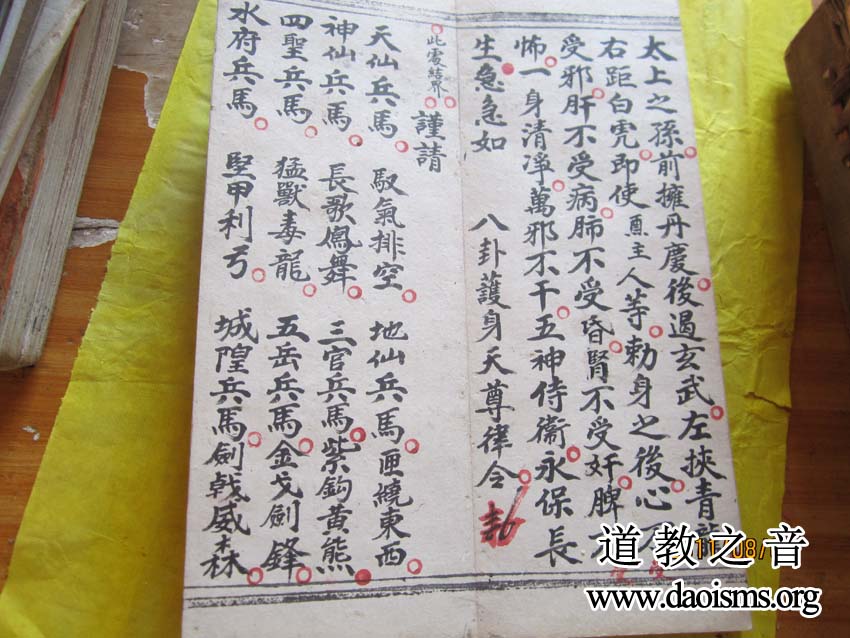 太上之孫前擁丹慶後遏玄武左挾青龍
右距白虎即使 主人等勅身之後心不
受邪肝不受病肺不受昏腎不受奸脾不
怖一身清淨萬邪不干五神侍衞永保長
生急急如 八卦護身天尊律令 勅
此處結界 謹請
天仙兵馬 馭氣排空 地仙兵馬匝繞東西
神仙兵馬 長歌鳳舞 三官兵馬紫鈎黃熊
四聖兵馬 猛獸毒龍 五岳兵馬金戈劍鋒
水府兵馬 堅甲利弓 城隍兵馬劍戟威森
道教之音
www.daoisms.org